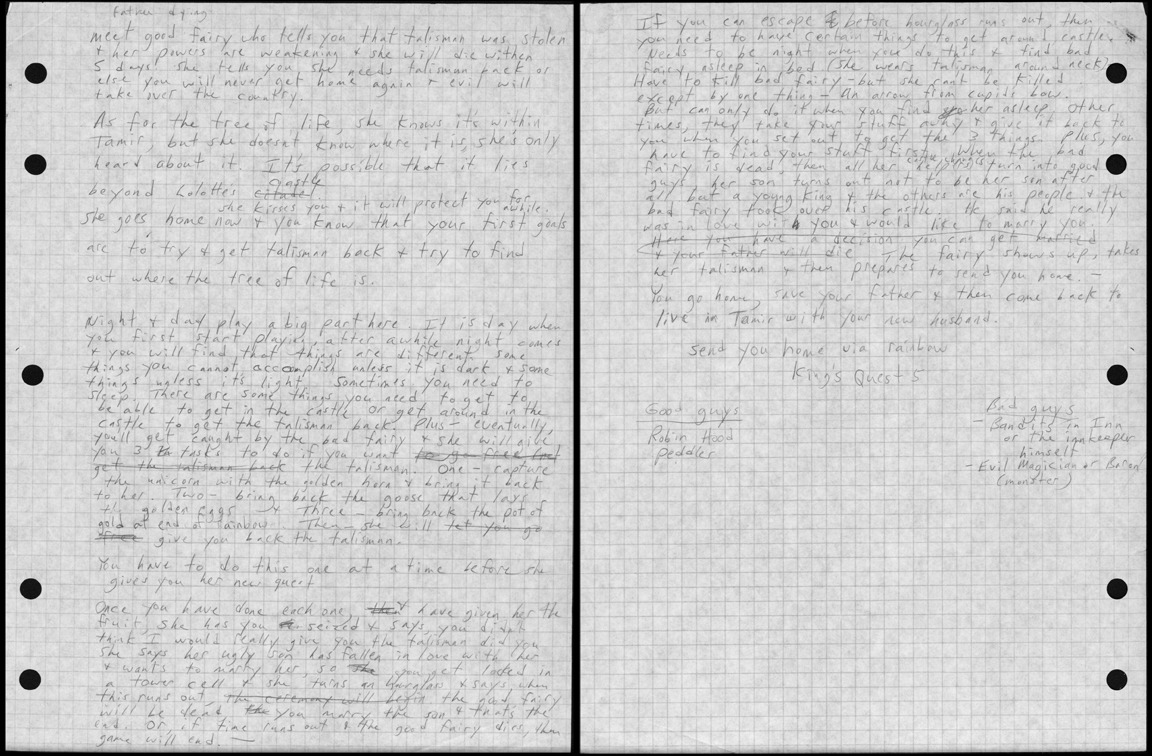 Father dying
meet good fairy who tells you that talisman was stolen
& her powers are weakening & she will die within
5 days! She tells you she needs talisman back or
else you will never get home again & evil will
take over the country.
As for the tree of life, she knows its within
Tamir, but she doesnt know where it is, she's only
heard about it. It's possible that it lies
beyond Lolottes castle
she kisses you & it will protect you for awhile.
she goes home now & you know that your first goals
are to try & get talisman back & try to find
out where the tree of life is.
Night & day play a big part here. It is day when
you first start playing, after awhile night comes
& you will find that things are different, some
things you cannot accomplish unless it is dark & some
things unless its light. Sometimes you need to
sleep. There are some things you need to get to
be able to get in the castle or get around in the
castle to get the talisman back. Plus - eventually,
youll get caught by the bad fairy & she will give
you 3 tasks to do if you want to go free
get the talisman back the talisman. One - capture
the unicorn with the golden horn & bring it back
to her. Two - bring back the goose that lays
the golden eggs & Three - bring back the pot of
gold at end of rainbow. Then - she will let you go
free give you back the talisman.
You have to do this one at a time before she
gives you her new quest
Once you have done each one, & have given her the
fruit, she has you seized & says you didnt
think I would really give you the talisman did you
She says her ugly son has fallen in love with her
& wants to marry her, so she you get locked in
a tower cell & she turns an hourglass & says when
this runs out, the ceremony will begin the good fairy
will be dead the you marry the son & thats the
end. Or if time runs out & the good fairy dies, then
game will end. —
If you can escape before hourglass runs out, then
you need to have certain things to get around castle.
Needs to be night when you do this & find bad
fairy asleep in bed (She wears talisman around neck)
Have to kill bad fairy - but she cant be killed
except by one thing - An arrow from cupids bow.
But can only do it when you find her asleep. Other
times, they take your stuff away & give it back to
you when you set out to get the 3 things. Plus, you
have to find your stuff first. When the bad
fairy is dead, then all her castle helpers turn into good
guys, her son turns out not to be her son after
all but a young king & the others are his people & the
bad fairy took over his castle. He said he really
was in love with you & would like to marry you.
Here you have a decision you can get married
& your father will die The fairy shows up, takes
her talisman & then prepares to send you home. —
You go home, save your father & then come back to
live in Tamir with your new husband.
send you home via rainbow
Kings Quest 5
Good guys
Robin Hood
Peddler
Bad guys
- Bandits in Inn
or the innkeeper
himself
- Evil Magician or Baron
(monster)